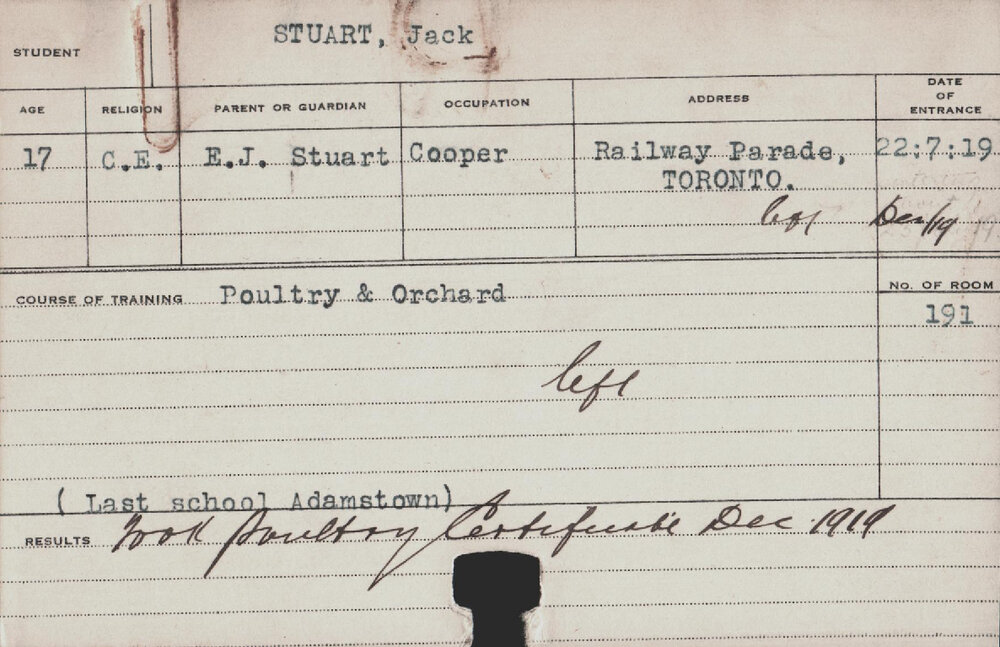 STUDENT STUART, Jack
AGE RELIGION PARENT OR GUARDIAN OCCUPATION ADDRESS DATE OF ENTRANCE
17 C.E. E.J. Stuart Cooper Railway Parade, 22:7:19
TORONTO.
left Dec/19
COURSE OF TRAINING Poultry & Orchard NO. OF ROOM
191
left
( Last school Adamstown)
RESULTS Took Poultry Certificate Dec 1919